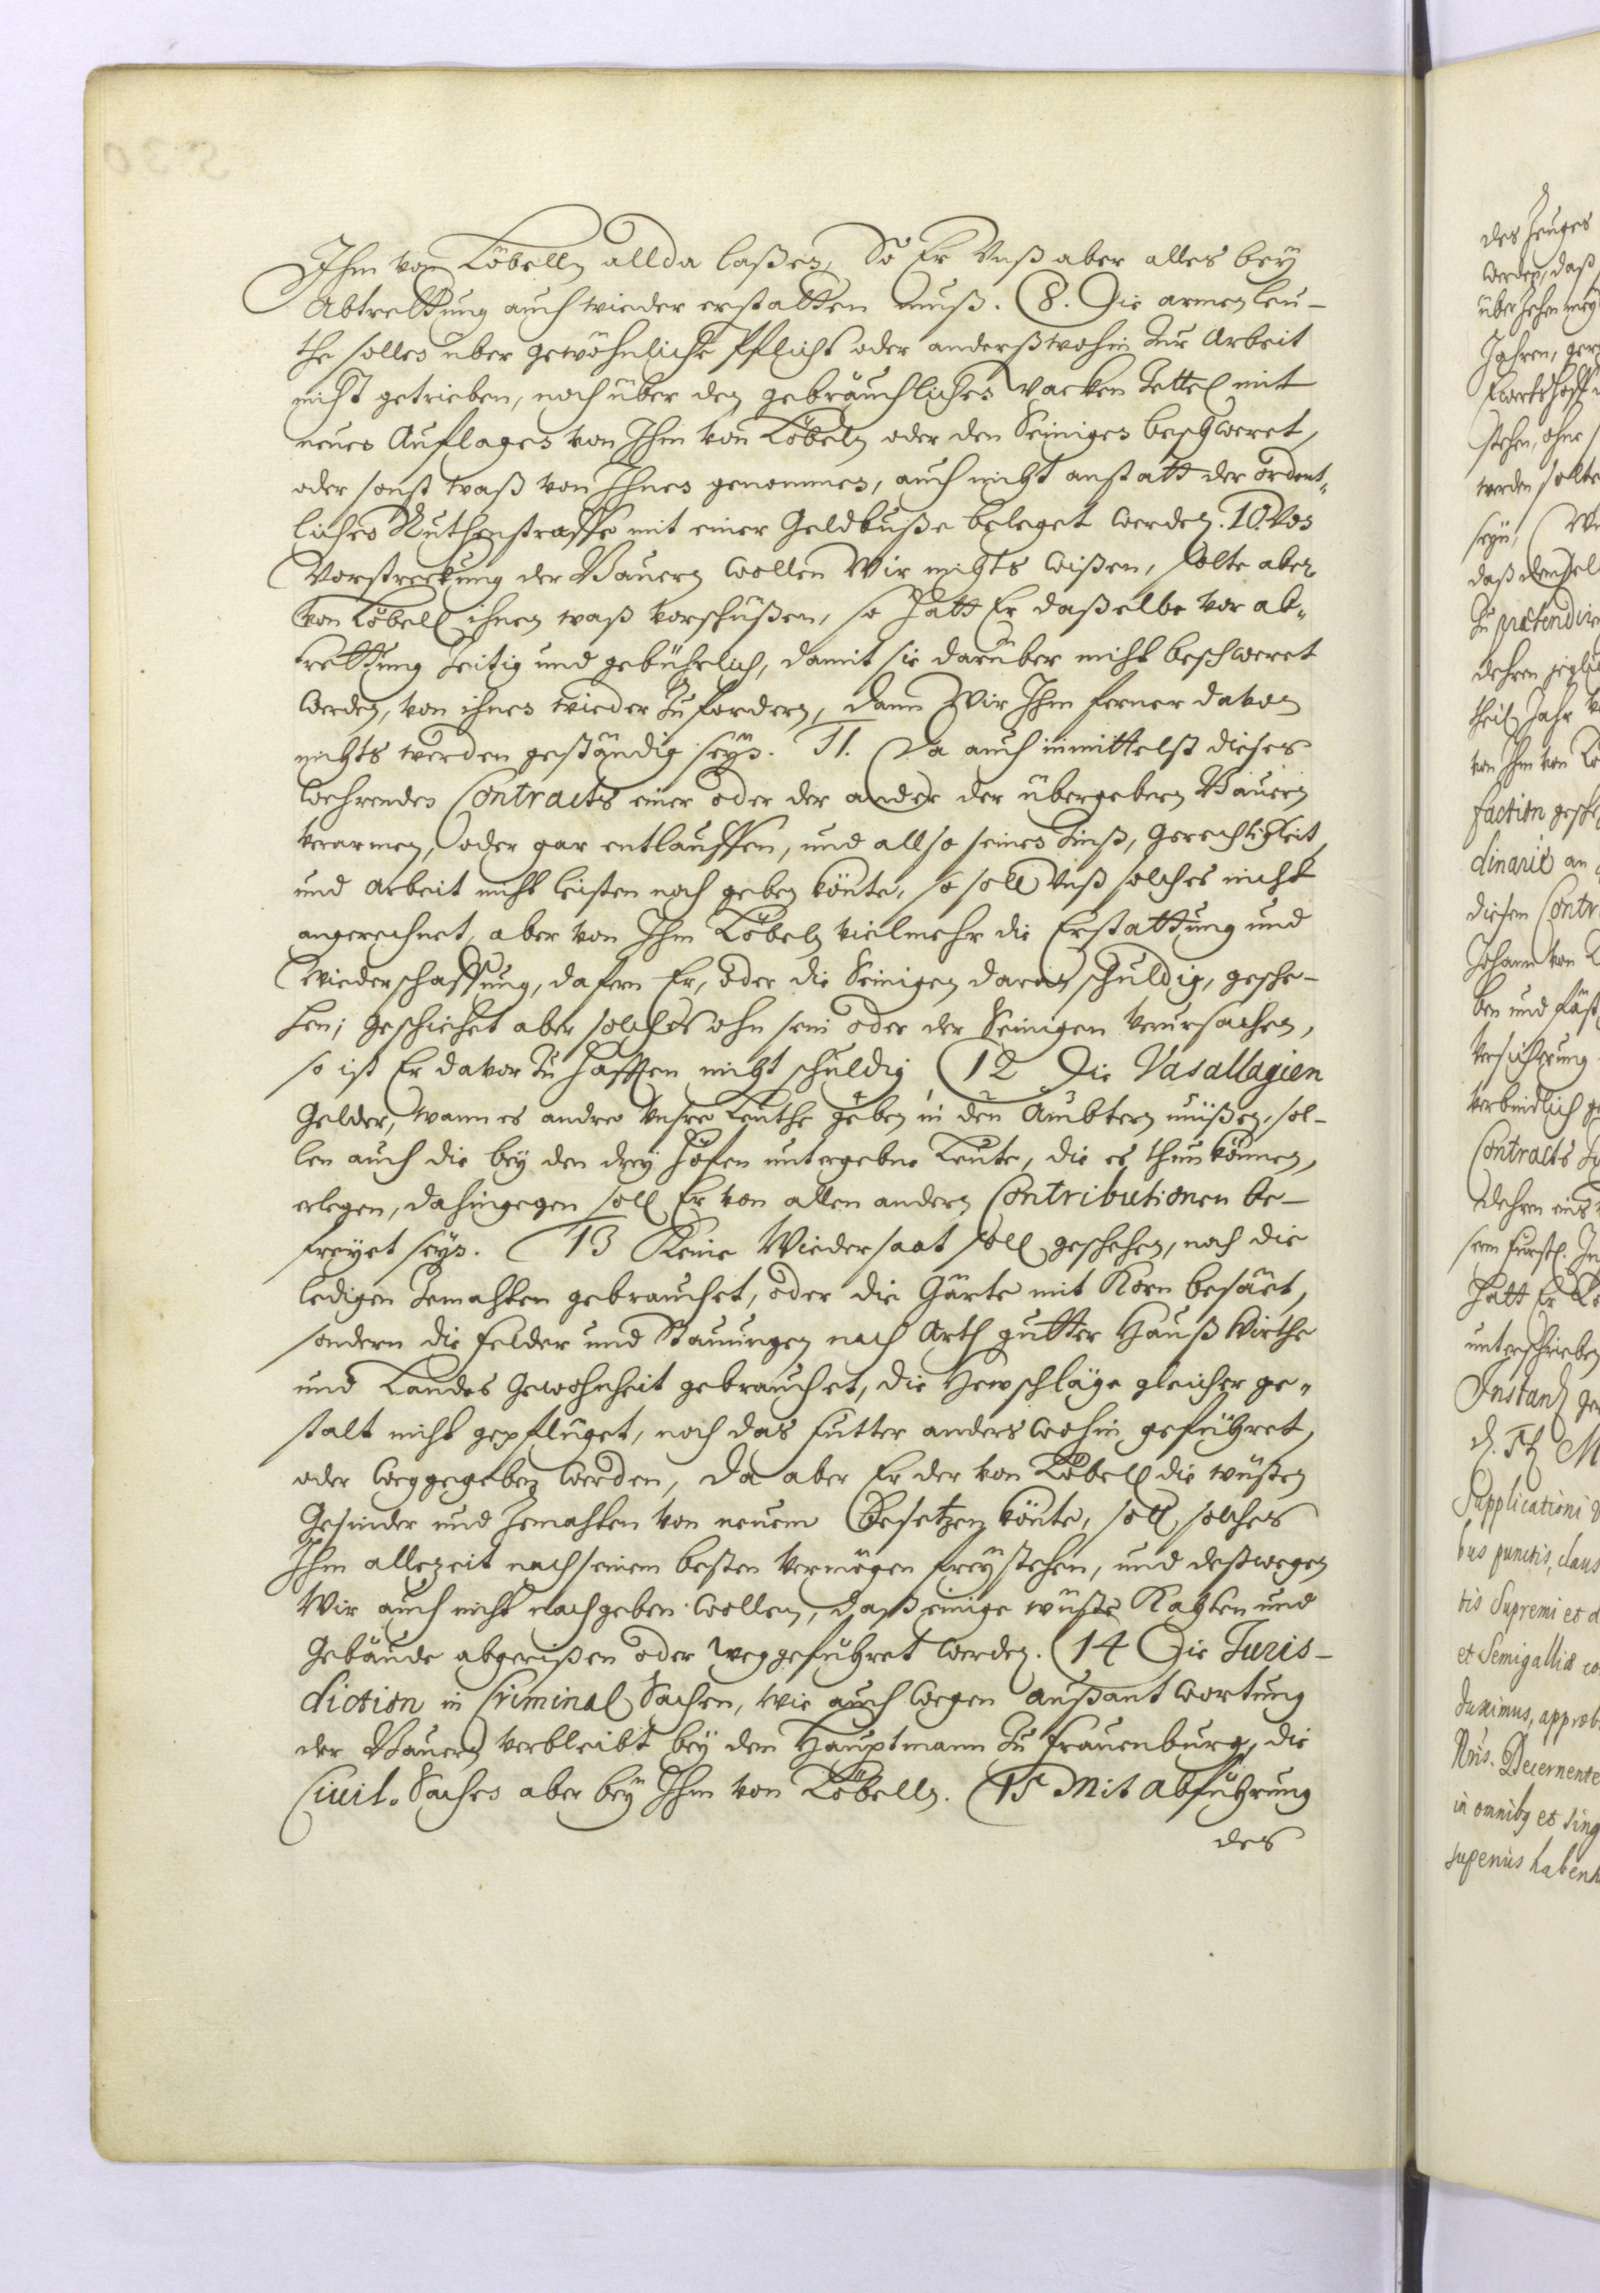 Ihm von Löbelln allda laßen, So Er Unß aber alles bey
Abtrettung auch wieder erstatten muß. 8. Die armen leu-
the sollen über gewöhnliche Pflicht oder anderßwohin zur Arbeit
nicht getrieben, noch über den gebräuchlichen Wacken Zettel mit
neuen Auflagen von Ihm von Löbeln oder den Seinigen beschweret,
oder sonst waß von Ihnen genommen, auch nicht anstatt der ordent-
lichen Ruthenstraffe mit einer Geldbuße beleget werden. 10. Von
Vorstreckung der Bauern wollen Wir nichts wißen, solte aber
von Löbell ihnen waß vorschüßen, so hatt Er daßelbe vor ab-
trettung zeitig und gebührlich, damit sie darüber nicht beschweret
werden, von ihnen wieder zu fordern, dann Wir Ihm ferner davon
nichts werden geständig seyn. 11. Da auch inmittelst dieses
wehrenden Contracts einer oder der ander der übergebenen Bauern
verarmen, oder gar entlauffen, und allso seinen Zinß, Gerechtigkeit,
und Arbeit nicht leisten noch geben könte, so soll Unß solches nicht
angerechnet, aber von Ihm Löbeln vielmehr die Erstattung und
Wiederschaffung, dafern Er, oder die Seinigen daran schuldig, gesche-
hen; geschiehet aber solches ohn sein oder der Seinigen verursachen,
so ist Er davor zu hafften nicht schuldig 12 Die Vasallagien
Gelder, wann es andre Unsre Leuthe geben in den Ämbtern müßen, sol-
len auch die bey den drey Höfen untergebne Leute, die es thun können,
erlegen, dahingegen soll Er von allen andern Contributionen be-
freyet seyn. 13 Keine Wiedersaat soll geschehen, noch die
ledigen Jemahten gebrauchet, oder die Gärte mit Korn besäet,
sondern die Felder und Stauungen nach Arth gutter Hauß Wirthe
und Landes Gewohnheit gebrauchet, die Hewschläge gleicher ge-
stalt nicht gepflüget, noch das Futter anderswohin geführet,
oder weggegeben werden, da aber Er der von Löbell die wüsten
Gesinder und Jemahten von neuem Besetzen könte, soll solches
Ihm allezeit nach seinem besten Vermögen frey stehen, und deßwegen
Wir auch nicht nachgeben wollen, daß einige wüste Kahten und
Gebäude abgerißen oder weggeführet werden. 14 Die Juris-
diction in Criminal Sachen, wie auch wegen Außantwortung
der Bauern verbleibt bey dem Hauptmann zu Frauenburg, die
Civil-Sachen aber bey Ihm von Löbelln. 15 Mit Abführung
des
des Zeuges
werden, daß
Jahren,
stehen, ohne
werden sollte
seyn,
zu prætendir
faction
dinarie an
diesen Contr
Johann von
ben und
Versicherung
verbindlich
Contracts
unterschrieben
Instantz
Supplicationi
bus punctis, claus
tis Supremi et d
et Semigalliæ
duximus, approb
Decernente
in omnibq et sing